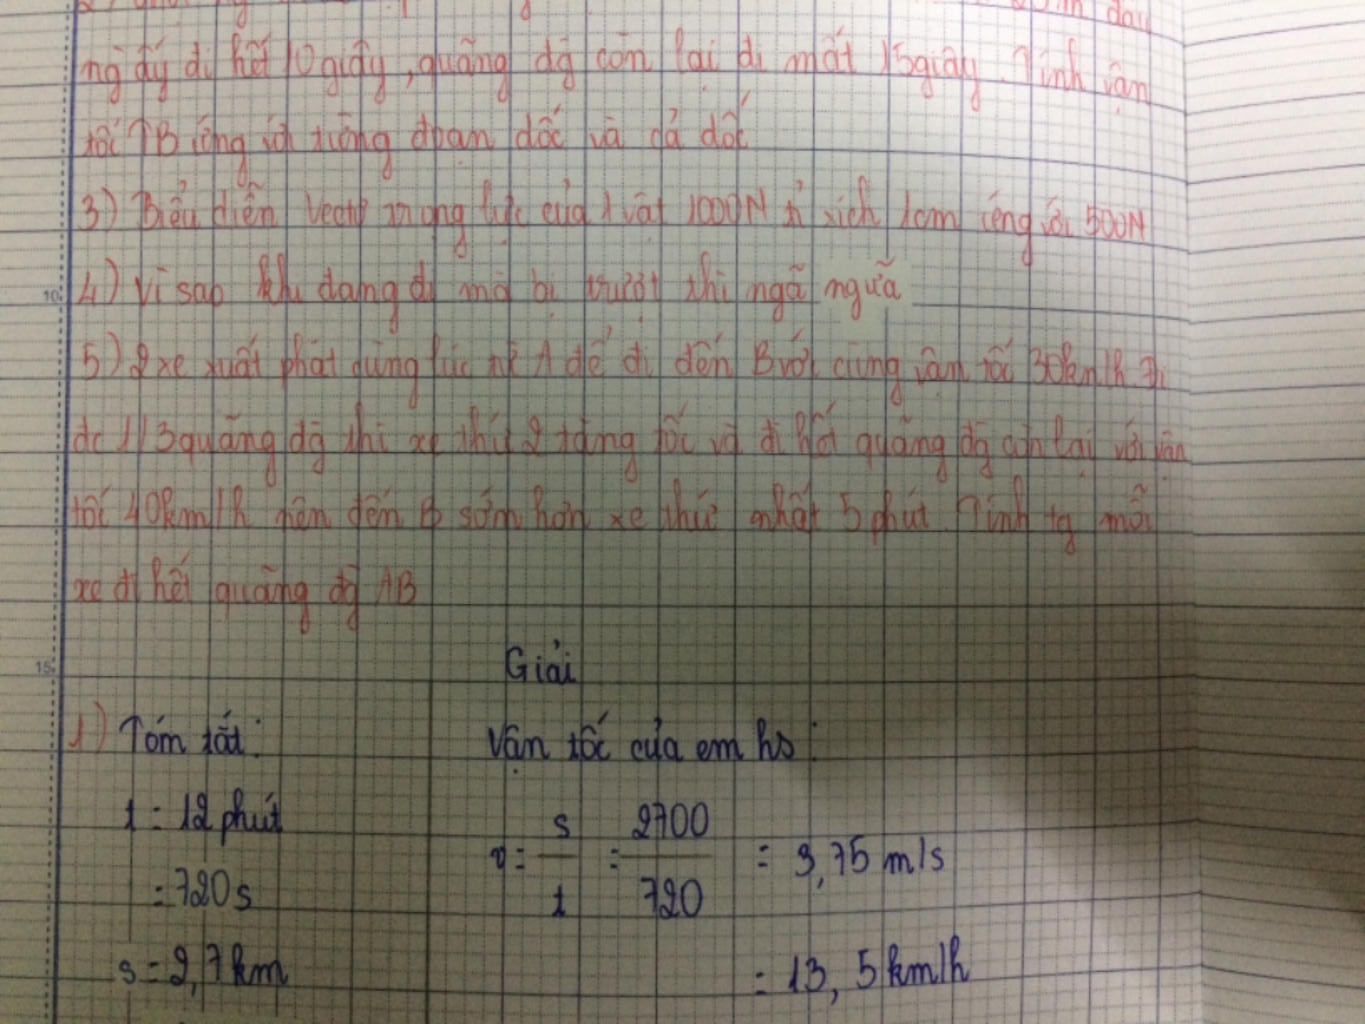 đầu
ng ấy đi hết 10giây, quãng đg còn lại đi mất 15giây. Tính vận
tốc TB ứng với từng đoạn dốc và cả dốc
3) Biểu diễn vectơ trọng lực của 1 vật 1000N tỉ xích 1cm ứng với 500N
4) Vì sao khi đang đi mà bị trượt thì ngã ngửa
5) 2 xe xuất phát cùng lúc từ A để đi đến B với cùng vận tốc 30km/h. Đi
đc 1/3 quãng đg thì xe thứ 2 tăng tốc và đi hết quãng đg còn lại với vận
tốc 40km/h nên đến B sớm hơn xe thứ nhất 5 phút. Tính tg mỗi
xe đi hết quãng đg AB
Giải
1) Tóm tắt: Vận tốc của em hs:
t = 12 phút
= 720s
s = 2,7 km
v = s/t = 2700/720 = 3,75 m/s
= 13,5 km/h
10
15